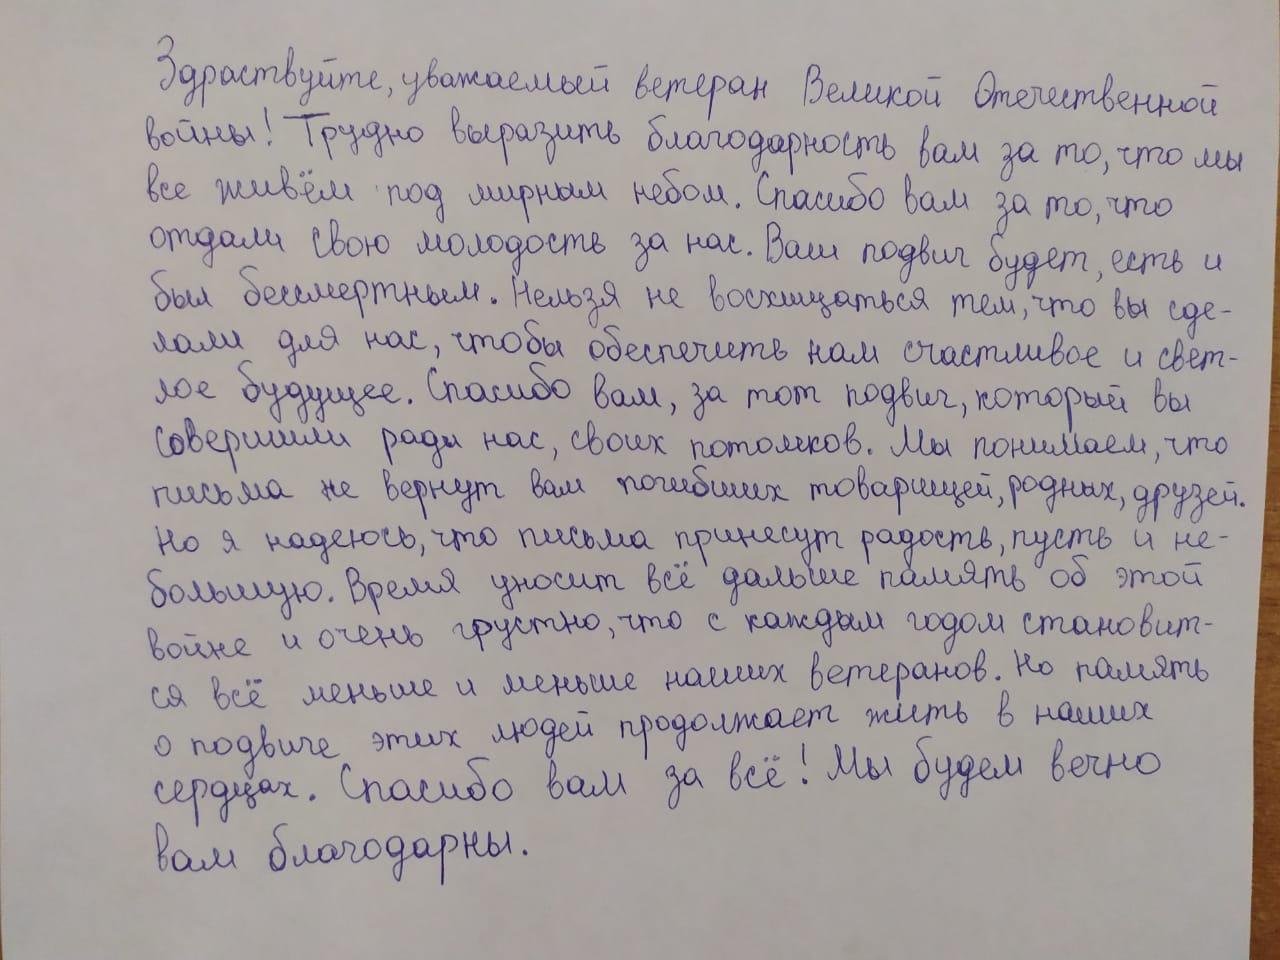 Здраствуйте, уважаемый ветеран Великой Отечественной
войны! Трудно выразить благодарность вам за то, что мы
все живём под мирным небом. Спасибо вам за то, что
отдали свою молодость за нас. Ваш подвиг будет, есть и
был бессмертным. Нельзя не восхищаться тем, что вы сде-
лали для нас, чтобы обеспечить нам счастливое и свет-
лое будущее. Спасибо вам, за тот подвиг, который вы
совершили ради нас, своих потомков. Мы понимаем, что
письма не вернут вам погибших товарищей, родных, друзей.
Но я надеюсь, что письма принесут радость, пусть и не-
большую. Время уносит всё дальше память об этой
войне и очень грустно, что с каждым годом становит-
ся всё меньше и меньше наших ветеранов. Но память
о подвиге этих людей продолжает жить в наших
сердцах. Спасибо вам за всё! Мы будем вечно
вам благодарны.